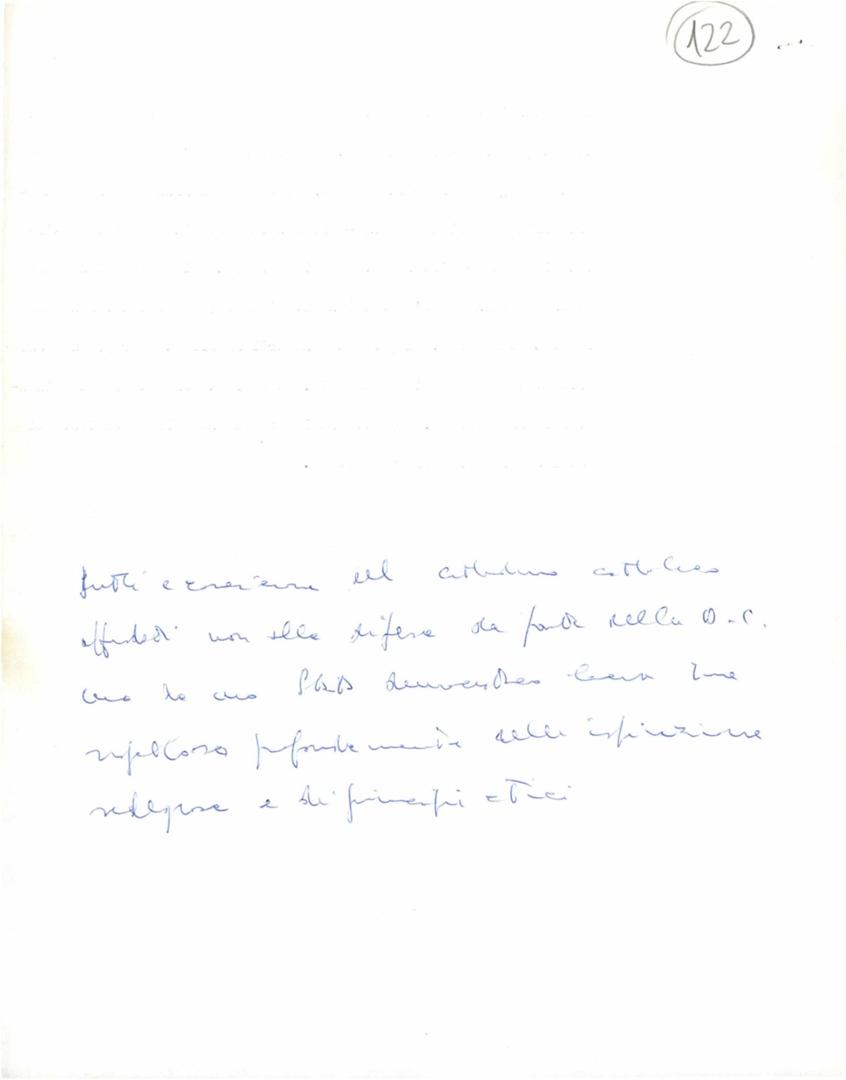 122
e coscienza del cittadino cattolico
affidati non alla difesa da parte della D.C.
ma da uno Stato democratico
rispettoso profondamente della ispirazione
religiosa e di principi etici